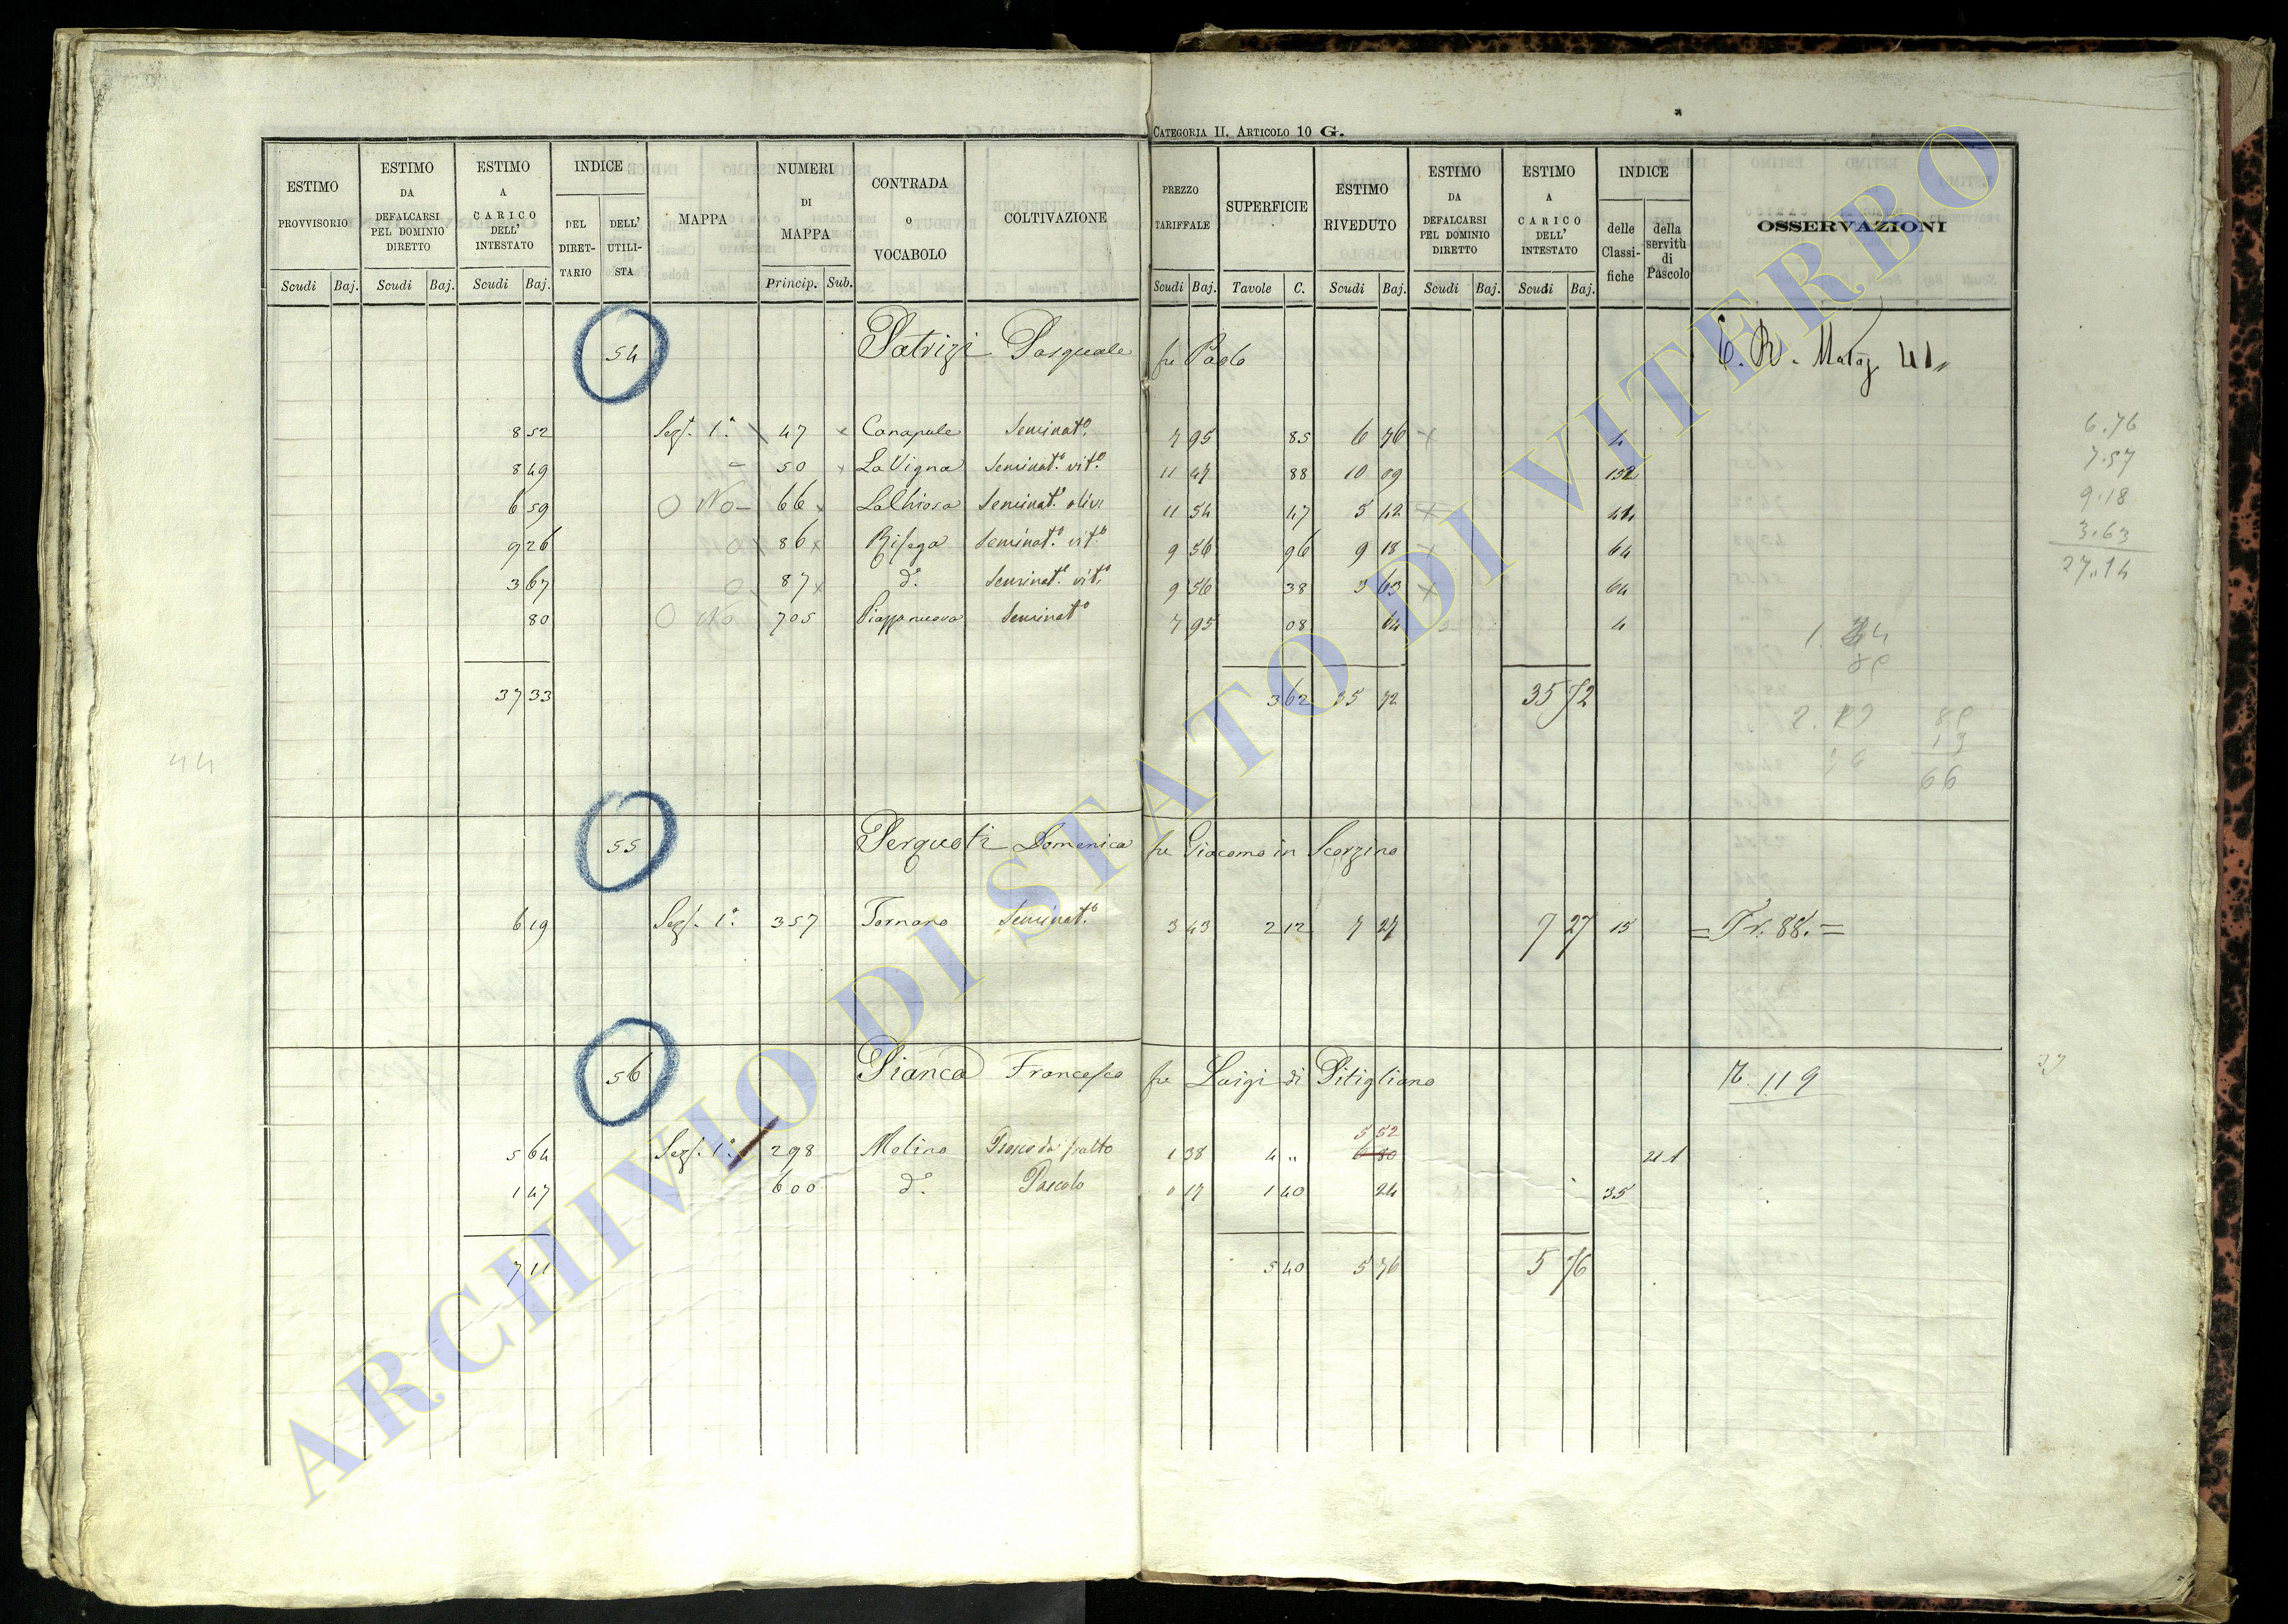 CATEGORIA II. ARTICOLO 10 G.
ESTIMO PROVVISORIO Scudi Baj.
ESTIMO DA DEFALCARSI PEL DOMINIO DIRETTO Scudi Baj.
ESTIMO A CARICO DELL' INTESTATO Scudi Baj.
INDICE DEL DIRETTARIO DELL' UTILISTA
MAPPA
NUMERI DI MAPPA Princip. Sub.
CONTRADA O VOCABOLO
COLTIVAZIONE
PREZZO TARIFFALE Scudi Baj.
SUPERFICIE Tavole C.
ESTIMO RIVEDUTO Scudi Baj.
ESTIMO DA DEFALCARSI PEL DOMINIO DIRETTO Scudi Baj.
ESTIMO A CARICO DELL' INTESTATO Scudi Baj.
INDICE delle Classifiche della servitù di Pascolo
OSSERVAZIONI
54 Patrizi Pasquale fu Paolo
8 52 Sez. 1ª 47 Canapule Seminat.º 7 95 85 6 76 4
8 49 50 La Vigna Seminat.º vit.º 11 47 88 10 09 152
6 59 No 66 La Chiosa Seminat.º oliv. 11 54 47 5 42
9 26 86 Risega Seminat.º vit.º 9 56 96 9 18 64
3 67 87 d.º Seminat.º vit.º 9 56 38 3 63 64
80 No 705 Piazza nuova Seminat.º 7 95 08 64 4
37 33 3 62 35 72 35 72
6.76
7.57
9.18
3.63
27.14
66
44
55 Perquoti Domenica fu Giacomo in Scorzino
6 19 Sez. 1ª 357 Tornaro Seminat.º 3 43 2 12 7 27 7 27 15 = Fr. 88. =
56 Pianca Francesco fu Luigi di Pitigliano 119
5 52
5 64 Sez. 1ª 298 Molino Pasco da falto 1 38 4 " 6 80 211
1 47 600 d.º Pascolo 0 17 1 40 24 35
7 11 5 40 5 76 5 76
ARCHIVIO DI STATO DI VITERBO